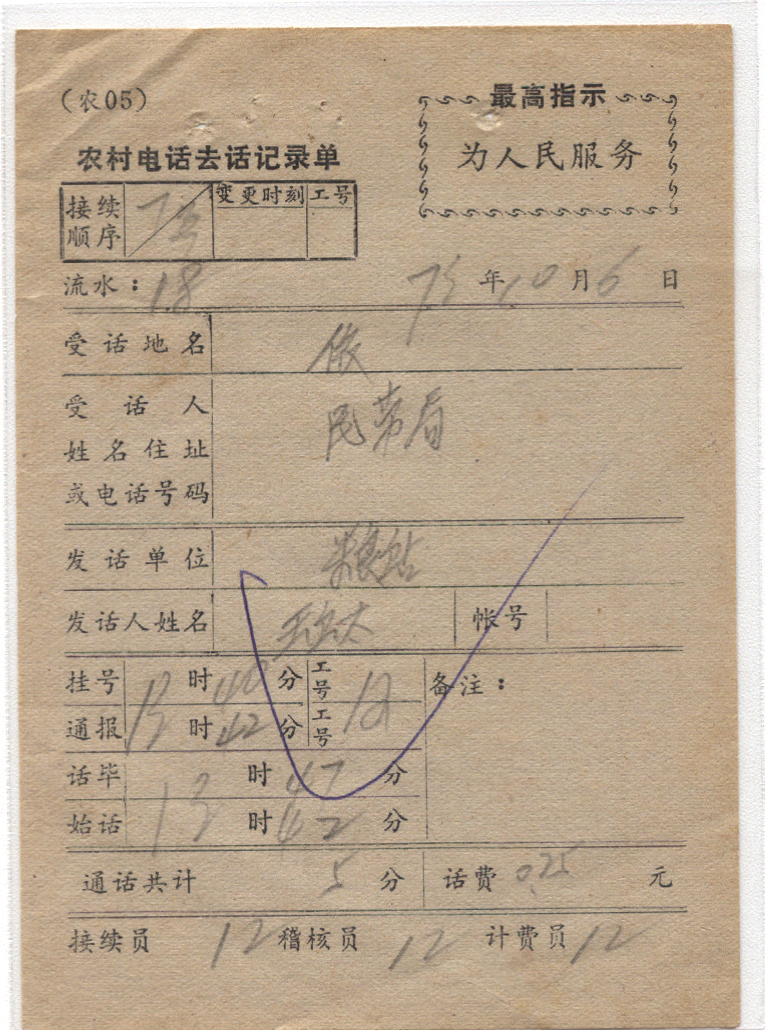 （农05）
最高指示
为人民服务
农村电话去话记录单
接续顺序 变更时刻 工号
流水：18 75年10月6日
受话地名 依
受话人
姓名住址 民常局
或电话号码
发话单位 粮站
发话人姓名 帐号
挂号 13时40分 工号 12 备注：
通报 13时42分 工号
话毕 13时47分
始话 时42分
通话共计 5分 话费 0.25 元
接续员 12 稽核员 12 计费员 12